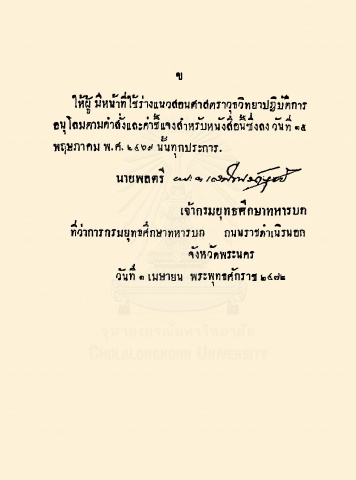 ข
ให้ผู้มีหน้าที่ใช้ร่างแนวสอนศาสตราวุธวิทยาปฏิบัติการ
อนุโลมตามคำสั่งและคำชี้แจงสำหรับหนังสือนี้ซึ่งลง วันที่ ๑๕
พฤษภาคม พ.ศ. ๒๔๖๙ นั้นทุกประการ.
นายพลตรี
เจ้ากรมยุทธศึกษาทหารบก
ที่ว่าการกรมยุทธศึกษาทหารบก ถนนราชดำเนินนอก
จังหวัดพระนคร
วันที่ ๑ เมษายน พระพุทธศักราช ๒๔๗๒
จุฬาลงกรณ์มหาวิทยาลัย
CHULALONGKORN UNIVERSITY